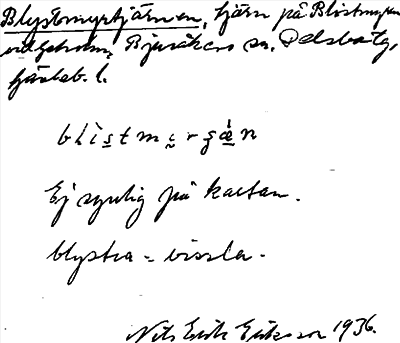 Blystmyrtjärnen, tjärn på Blistmyren
vid Bjuråkers sn, Delsbo tg,
Gävleb. l.
blìstmyrʒǽn
Ej synlig på kartan.
blystra = vissla.
Nils Erik Eriksson 1936.